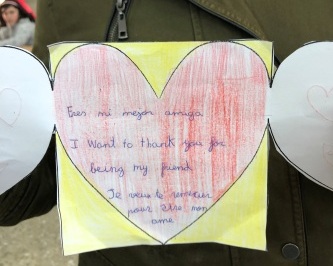 Eres mi mejor amiga
I Want to thank you for
being my friend
Je veux te remercier
pour être mon
ame